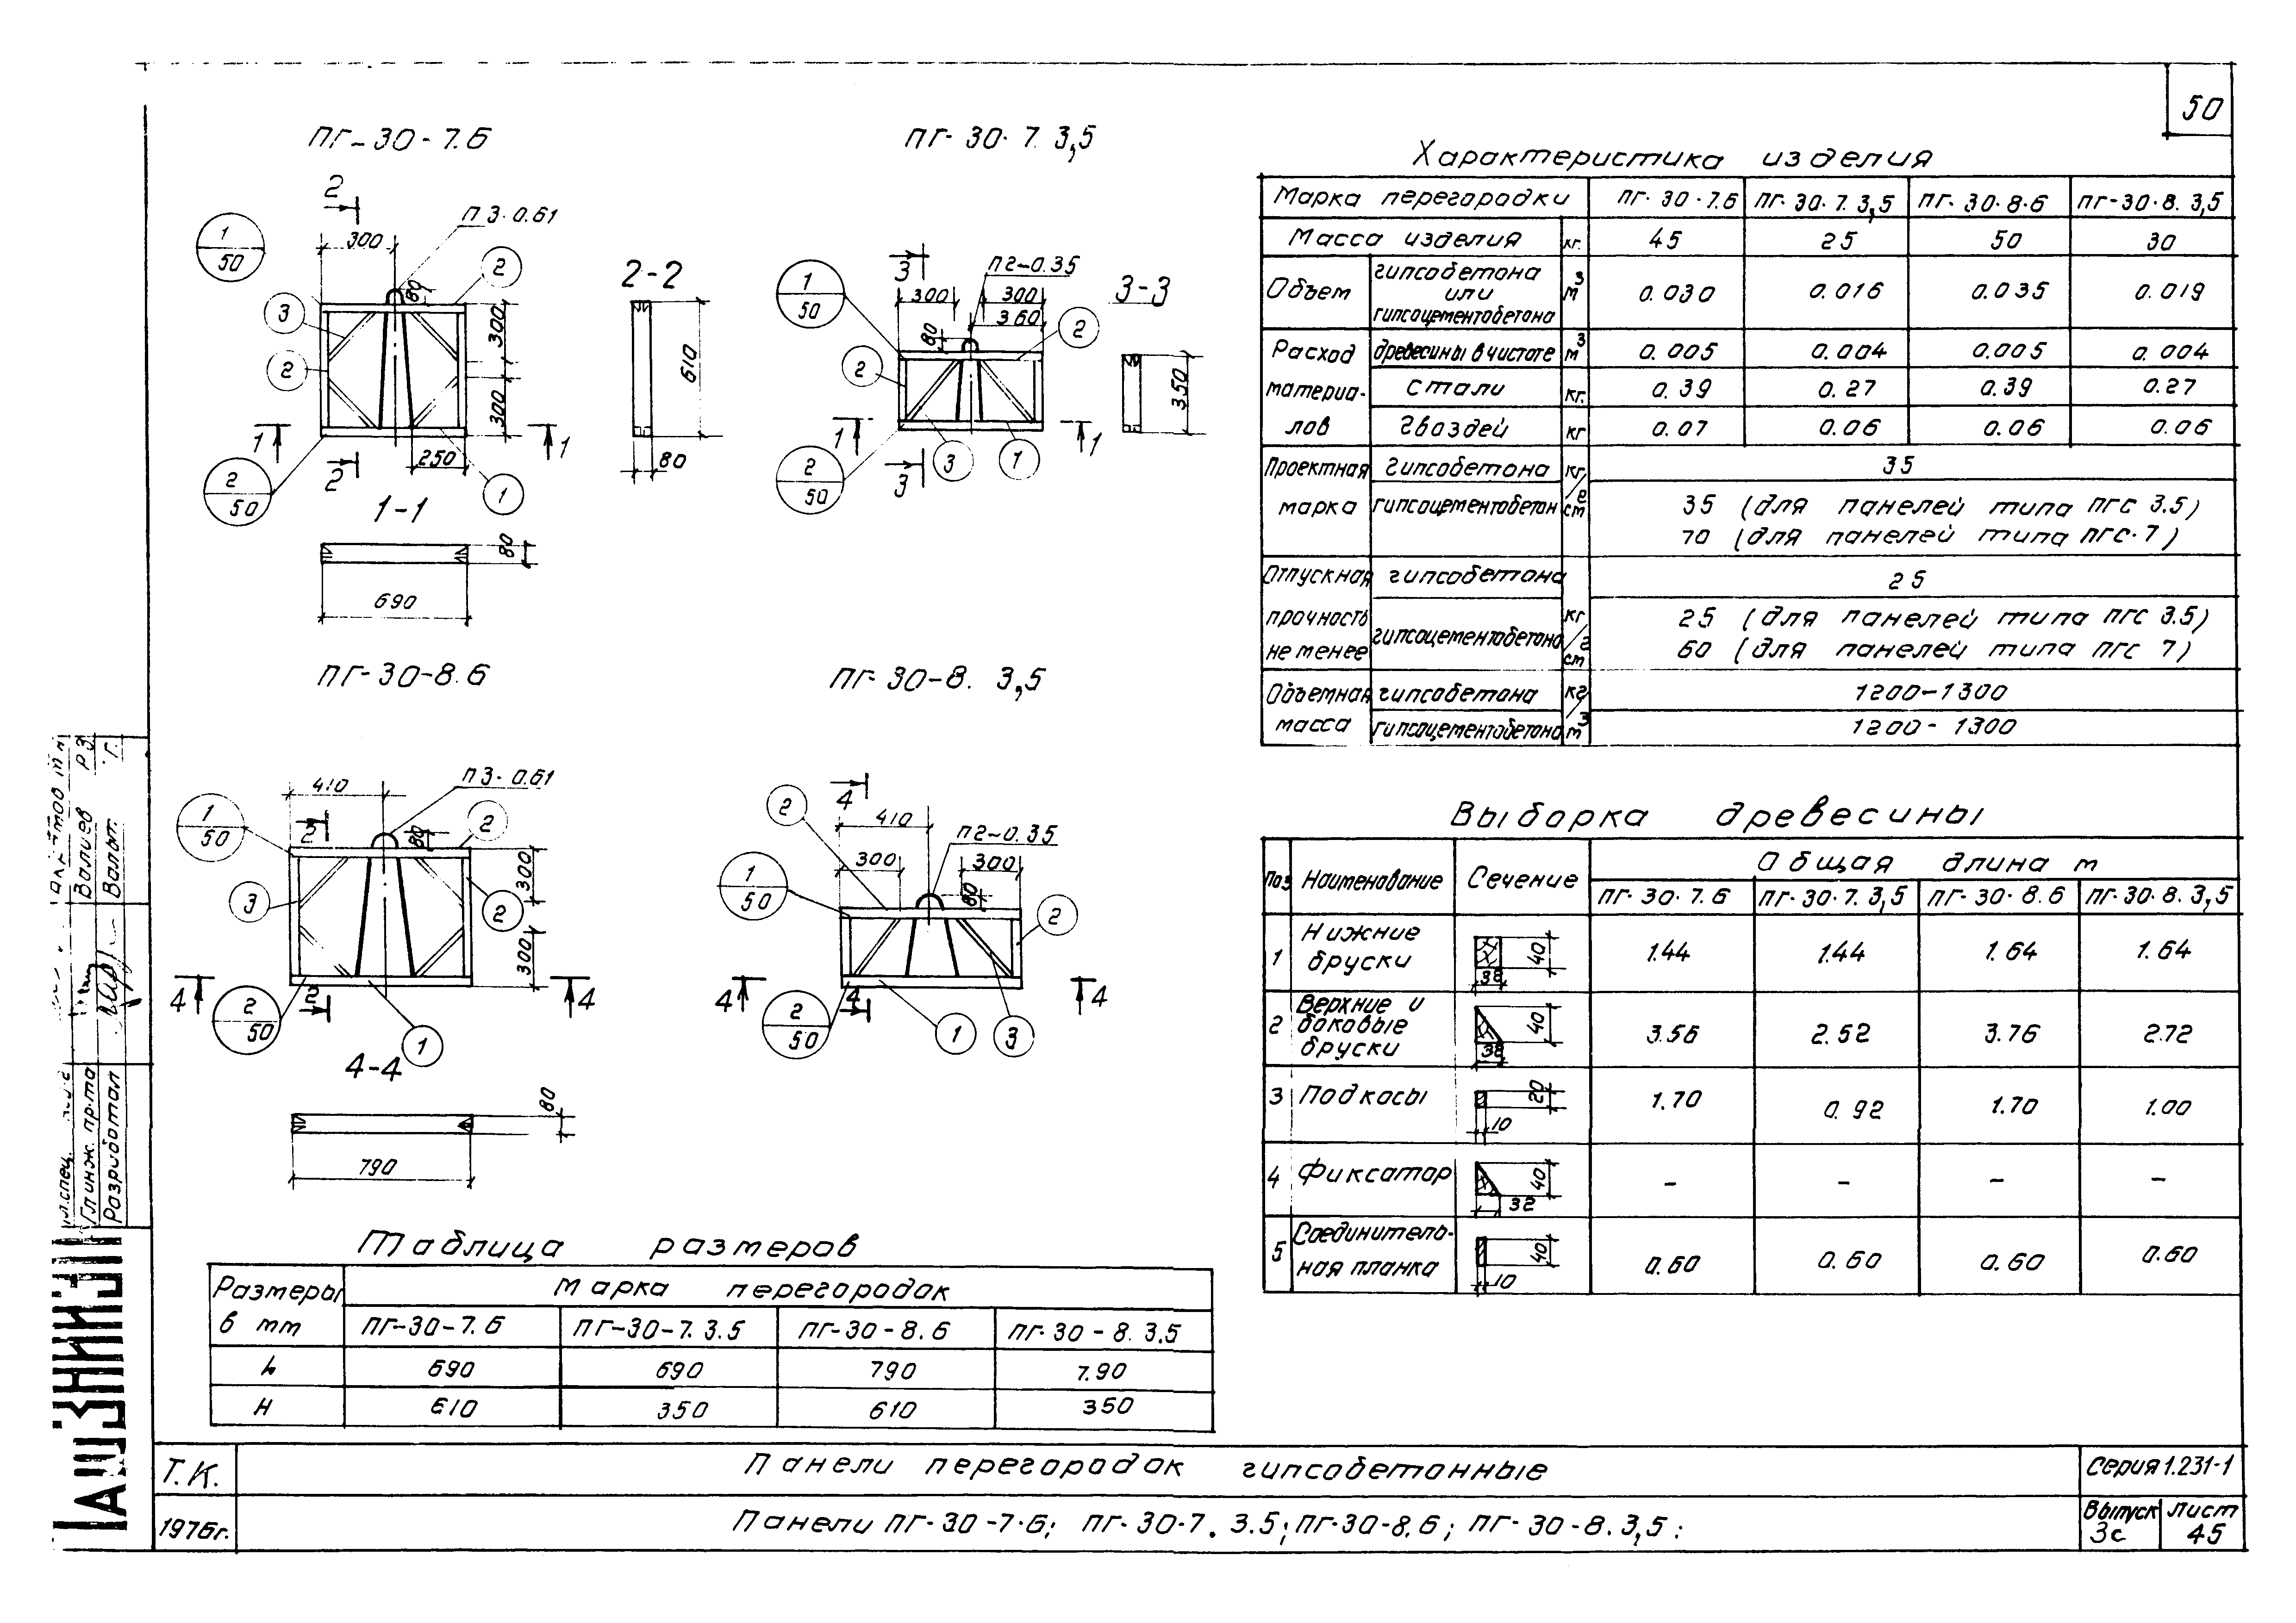 50
ПГ-30-7.6
2
П3-0.61
1
50
300
80
2
3
300
2
300
1
1
2
50
2
250
1
1-1
80
690
2-2
610
80
ПГ-30-7.3,5
3
П2-0.35
1
50
300
300
360
80
2
2
1
1
2
50
3
3
1
3-3
350
ПГ-30-8.6
410
П3-0.61
1
50
2
80
2
300
3
2
300
4
4
2
50
2
1
4-4
80
790
ПГ-30-8.3,5
4
2
410
П2-0.35
300
300
1
50
80
2
4
4
4
2
50
1
3
Характеристика изделия
Марка перегородки ПГ-30-7.6 ПГ-30-7.3,5 ПГ-30-8-6 ПГ-30-8.3,5
Масса изделия кг. 45 25 50 30
Объем гипсобетона или гипсоцементобетона м3 0.030 0.016 0.035 0.019
Расход материалов
древесины в чистоте м3 0.005 0.004 0.005 0.004
стали кг. 0.39 0.27 0.39 0.27
Гвоздей кг 0.07 0.06 0.06 0.06
Проектная марка
гипсобетона кг/см2 35
гипсоцементобетон 35 (для панелей типа ПГС 3.5)
70 (для панелей типа ПГС-7)
Отпускная прочность не менее
гипсобетона 25
гипсоцементобетона кг/см2 25 (для панелей типа ПГС 3.5)
60 (для панелей типа ПГС 7)
Объемная масса
гипсобетона кг/м3 1200-1300
гипсоцементобетона 1200-1300
Выборка древесины
Поз Наименование Сечение Общая длина м
ПГ-30-7.6 ПГ-30-7.3,5 ПГ-30-8.6 ПГ-30-8.3,5
1 Нижние бруски 40 38 1.44 1.44 1.64 1.64
2 Верхние и боковые бруски 40 38 3.56 2.52 3.76 2.72
3 Подкосы 20 10 1.70 0.92 1.70 1.00
4 Фиксатор 40 32 - - - -
5 Соединительная планка 40 10 0.60 0.60 0.60 0.60
Таблица размеров
Размеры в мм Марка перегородок
ПГ-30-7.6 ПГ-30-7.3.5 ПГ-30-8.6 ПГ-30-8.3.5
L 690 690 790 7.90
H 610 350 610 350
Т.К. Панели перегородок гипсобетонные Серия 1.231-1
1976г. Панели ПГ-30-7-6; ПГ-30-7.3.5; ПГ-30-8.6; ПГ-30-8.3,5;
Выпуск 3с
Лист 45
Гл.инж. пр.та Валиев Р.З
Разработал Валит. Г.